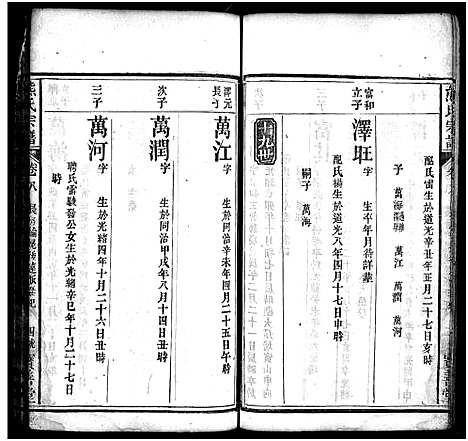 配氏雷生於道光辛丑年正月二十七日亥時
子 萬海 萬江 萬潤 萬河
富和
立子
澤旺
字 生卒年月待詳葬
配氏楊生於道光八年四月十七日申時
嗣子 萬海
澤元
長子
萬江
字 生於同治辛未年四月二十五日午時
次子
萬潤
字 生於同治甲戌年八月十四日丑時
三子
萬河
字 生於光緒四年十月二十六日丑時
聘氏雷駿發公女生於光緒辛巳年十月二十七日
時
熊氏宗譜
卷八